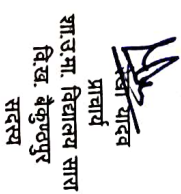 यादव
प्राचार्य
शा.उ.मा. विद्यालय सारा
वि.ख. बैकुण्ठपुर
सदस्य